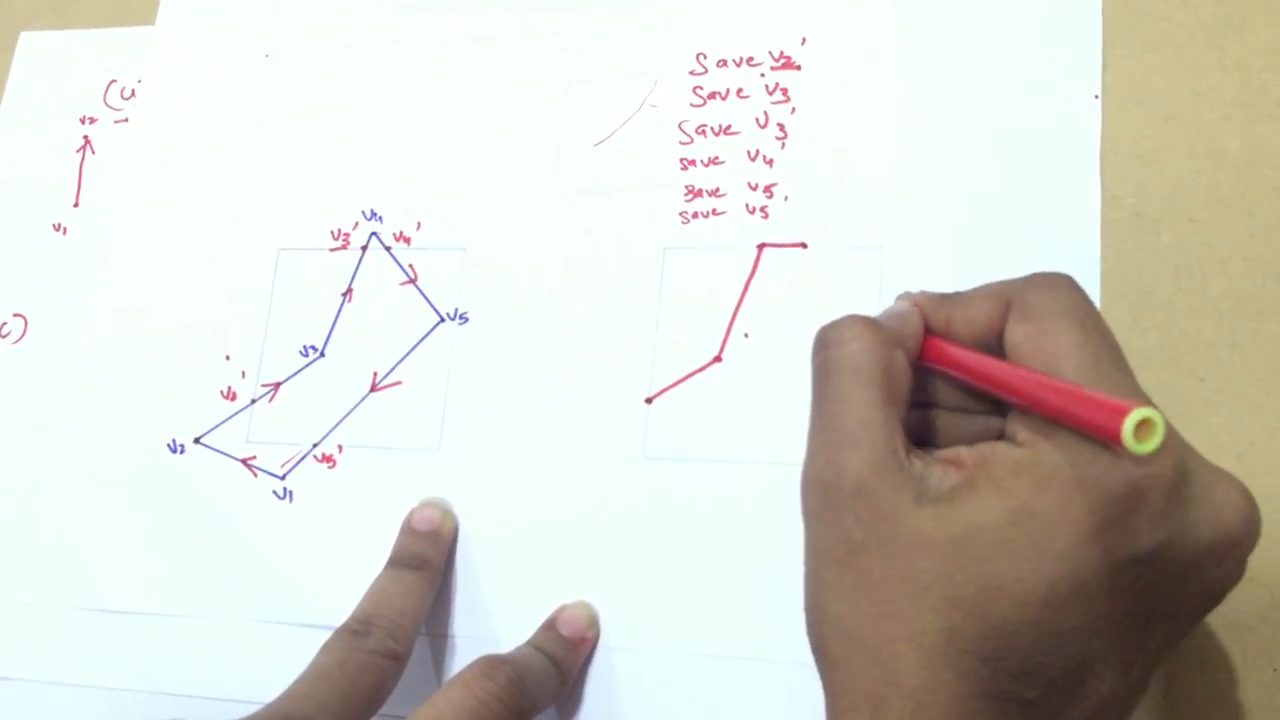 (ii
v2
v1
c)
Save v2'
Save v3
Save v3'
save v4'
save v5,
save v5
v4
v3'
v4'
v5
v3
v2'
v2
v5'
v1